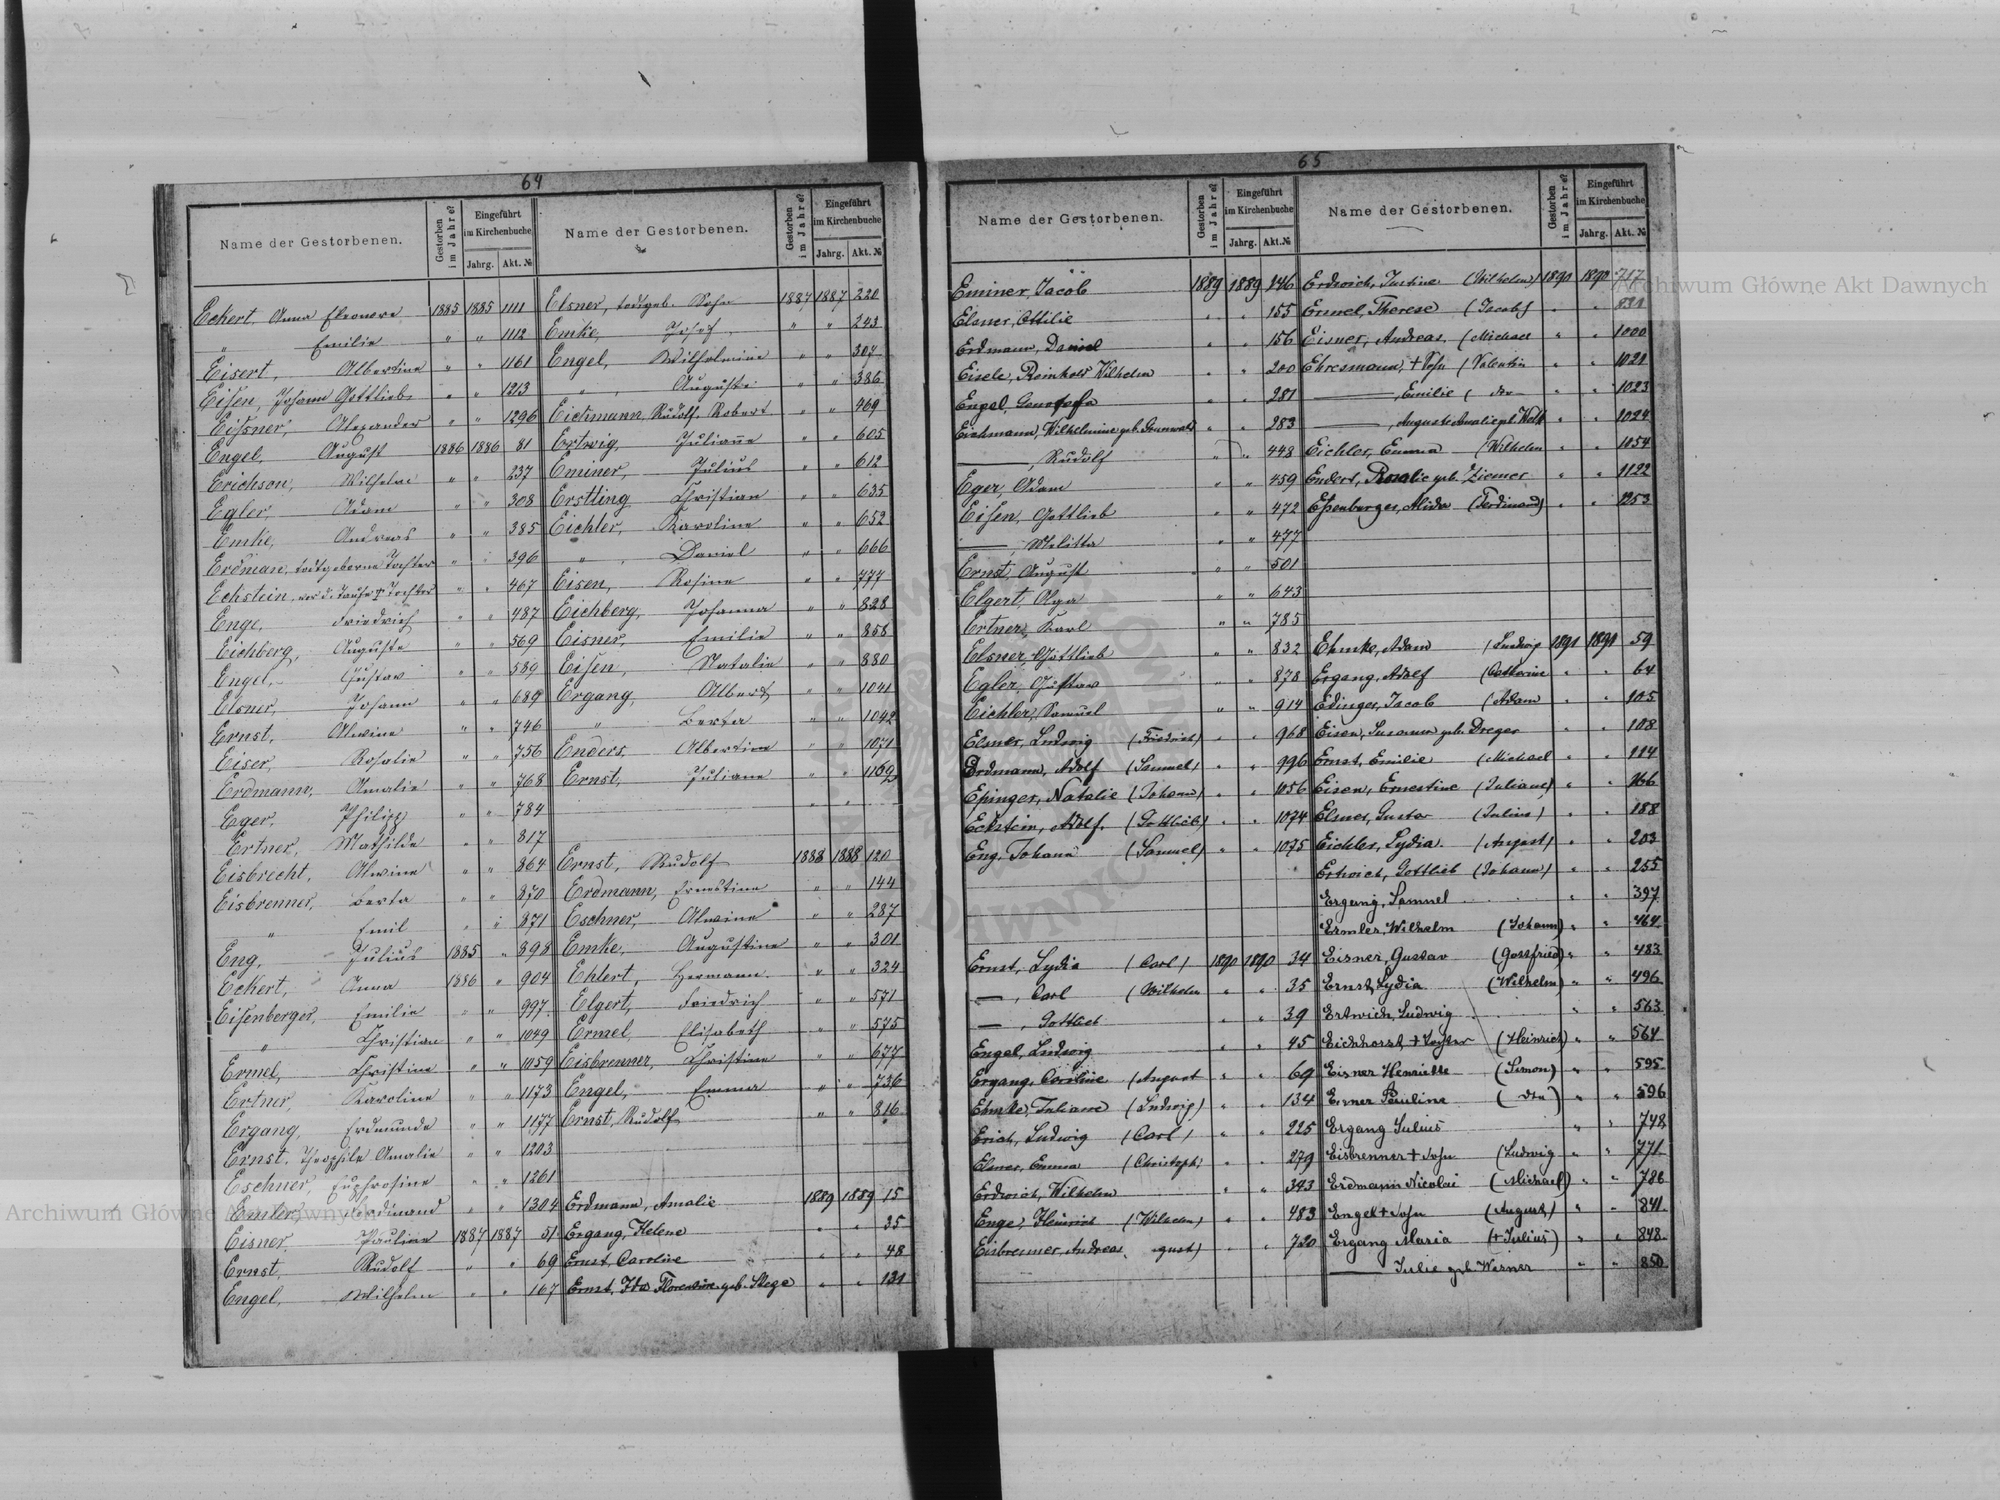 64
Name der Gestorbenen. Gestorben im Jahre? Eingeführt im Kirchenbuche Jahrg. Akt. №
Eckert, Anna Eleonore 1885 1885 1111
" Emilie " " 1112
Eisert, Albertine " " 1161
Eisen, Johann Gottlieb " " 1213
Eissner, Alexander " " 1296
Engel, August 1886 1886 81
Erichson, Wilhelm " " 237
Egler, Adam " " 308
Emke, Andreas " " 385
Erdman, todtgeborene Tochter " " 396
Echstein, vor d. Taufe † Tochter " " 467
Enge, Friedrich " " 487
Eichberg, Auguste " " 569
Engel, Gustav " " 589
Elsner, Johann " " 689
Ernst, Alwine " " 746
Eiser, Rosalie " " 756
Erdmann, Amalie " " 768
Eger, Philipp " " 784
Ertner, Mathilde " " 817
Eisbrecht, Alwine " " 864
Eisbrenner, Berta " " 870
" Emil " " 871
Eng, Julius 1885 " 898
Eckert, Anna 1886 " 904
Eisenberger, Emilie " " 997
" Christian " " 1049
Ermel, Christine " " 1059
Ertner, Karoline " " 1173
Ergang, Erdmunde " " 1177
Ernst, Theophile Amalie " " 1203
Eschner, Euphrosine " " 1261
Ferdinand " " 1304
Eisner, Pauline 1887 1887 51
Ernst, Rudolf " " 69
Engel, Wilhelm " " 167
Name der Gestorbenen. Gestorben im Jahre? Eingeführt im Kirchenbuche Jahrg. Akt. №
Elsner, todtgeb. Sohn 1887 1887 220
Emke, Josef " " 243
Engel, Wilhelmine " " 307
" Auguste " " 386
Eickmann, Rudolf Robert " " 469
Ertwig, Julianne " " 605
Eminer, Julius " " 612
Erstling Christian " " 635
Eichler, Karoline " " 652
" Daniel " " 666
Eisen, Rosine " " 777
Eichberg, Johanna " " 828
Eisner, Emilie " " 858
Eisen, Natalie " " 880
Ergang, Albert " " 1041
" Berta " " 1042
Enders, Albertine " " 1071
Ernst, Juliane " " 1109
Ernst, Rudolf 1888 1888 120
Erdmann, Ernestine " " 144
Eschner, Alwine " " 287
Emke, Augustine " " 301
Ehlert, Hermann " " 324
Elgert, Friedrich " " 571
Ermel, Elisabeth " " 575
Eisbrenner, Christine " " 677
Engel, Emma " " 736
Ernst, Rudolf " " 816
Erdmann, Amalie 1889 1889 15
Ergang, Helene " " 35
Ernst, Caroline " " 48
Ernst, Ida Florentine geb. Stege " " 131
65
Name der Gestorbenen. Gestorben im Jahre? Eingeführt im Kirchenbuche Jahrg. Akt. №
Eminer, Jacob 1889 1889 146
Elsner, Ottilie " " 155
Erdmann, Daniel " " 156
Eisele, Reinhold Wilhelm " " 200
Engel, " " 281
Eichmann, Wilhelmine geb. Grunwald " " 283
—, Rudolf " " 448
Eger, Adam " " 459
Eisen, Gottlieb " " 472
—, Melitta " " 477
Ernst, August " " 501
Elgert, Olga " " 643
Ertner, Karl " " 785
Elsner, Gottlieb " " 832
Egler, Gustav " " 878
Eichler, Samuel " " 914
Elsner, Ludwig (Friedrich) " " 968
Erdmann, Adolf (Samuel) " " 996
Epinger, Natalie (Johann) " " 1056
Eckstein, Adolf. (Gottlieb) " " 1074
Eng, Johann (Samuel) " " 1075
Ernst, Lydia (Carl) 1890 1890 34
—, Carl (Wilhelm " " 35
—, Gottlieb " " 39
Engel, Ludwig " " 45
Ergang, Caroline (August " " 69
Ehmke, Juliane (Ludwig) " " 134
Erich, Ludwig (Carl) " " 225
Elsner, Emma (Christoph) " " 279
Erdwich, Wilhelm " " 343
Enge, Heinrich (Wilhelm) " " 483
Eisbrenner, Andreas gust) " " 720
Name der Gestorbenen. Gestorben im Jahre? Eingeführt im Kirchenbuche Jahrg. Akt. №
Erdwich, Justine (Wilhelm) 1890 1890 717
Ermel, Therese (Jacob) " " 821
Eisner, Andreas. (Michael " " 1000
Ehresmann, † Sohn (Valentin " " 1021
—, Emilie ( dto " " 1023
—, Auguste Amalie geb. Wolf " " 1024
Eichler, Emma (Wilhelm " " 1054
Endert, Rosalie geb. Ziemer " " 1122
Essenburger, Alida (Ferdinand) " " 1253
Ehmke, Adam (Ludwig 1891 1891 59
Ergang, Adolf (Catharine " " 64
Edinger, Jacob (Adam " " 105
Eisen, Susanna geb. Dreger " " 108
Ernst, Emilie (Michael " " 114
Eisen, Ernestine (Juliane) " " 166
Elsner, Gustav (Julius) " " 188
Eichler, Lydia. (August) " " 203
Ertwich, Gottlieb (Johann) " " 255
Ergang, Samuel " " 397
Ermler, Wilhelm (Johann) " " 464
Eisner, Gustav (Gottfried) " " 483
Ernst, Lydia (Wilhelm) " " 496
Ertwich, Ludwig " " 563
Eichhorst, † Tochter (Heinrich) " " 564
Eisner Henriette (Simon) " " 595
Erner Pauline ( dto ) " " 596
Ergang Julius " " 748
Eisbrenner † Sohn (Ludwig " " 771
Erdmann Nicolai (Michael) " " 786
Engel † Sohn (August) " " 841
Ergang Maria († Julius) " " 848
— Julie geb. Werner " " 850
Archiwum Główne Akt Dawnych
Archiwum Główne Akt Dawnych